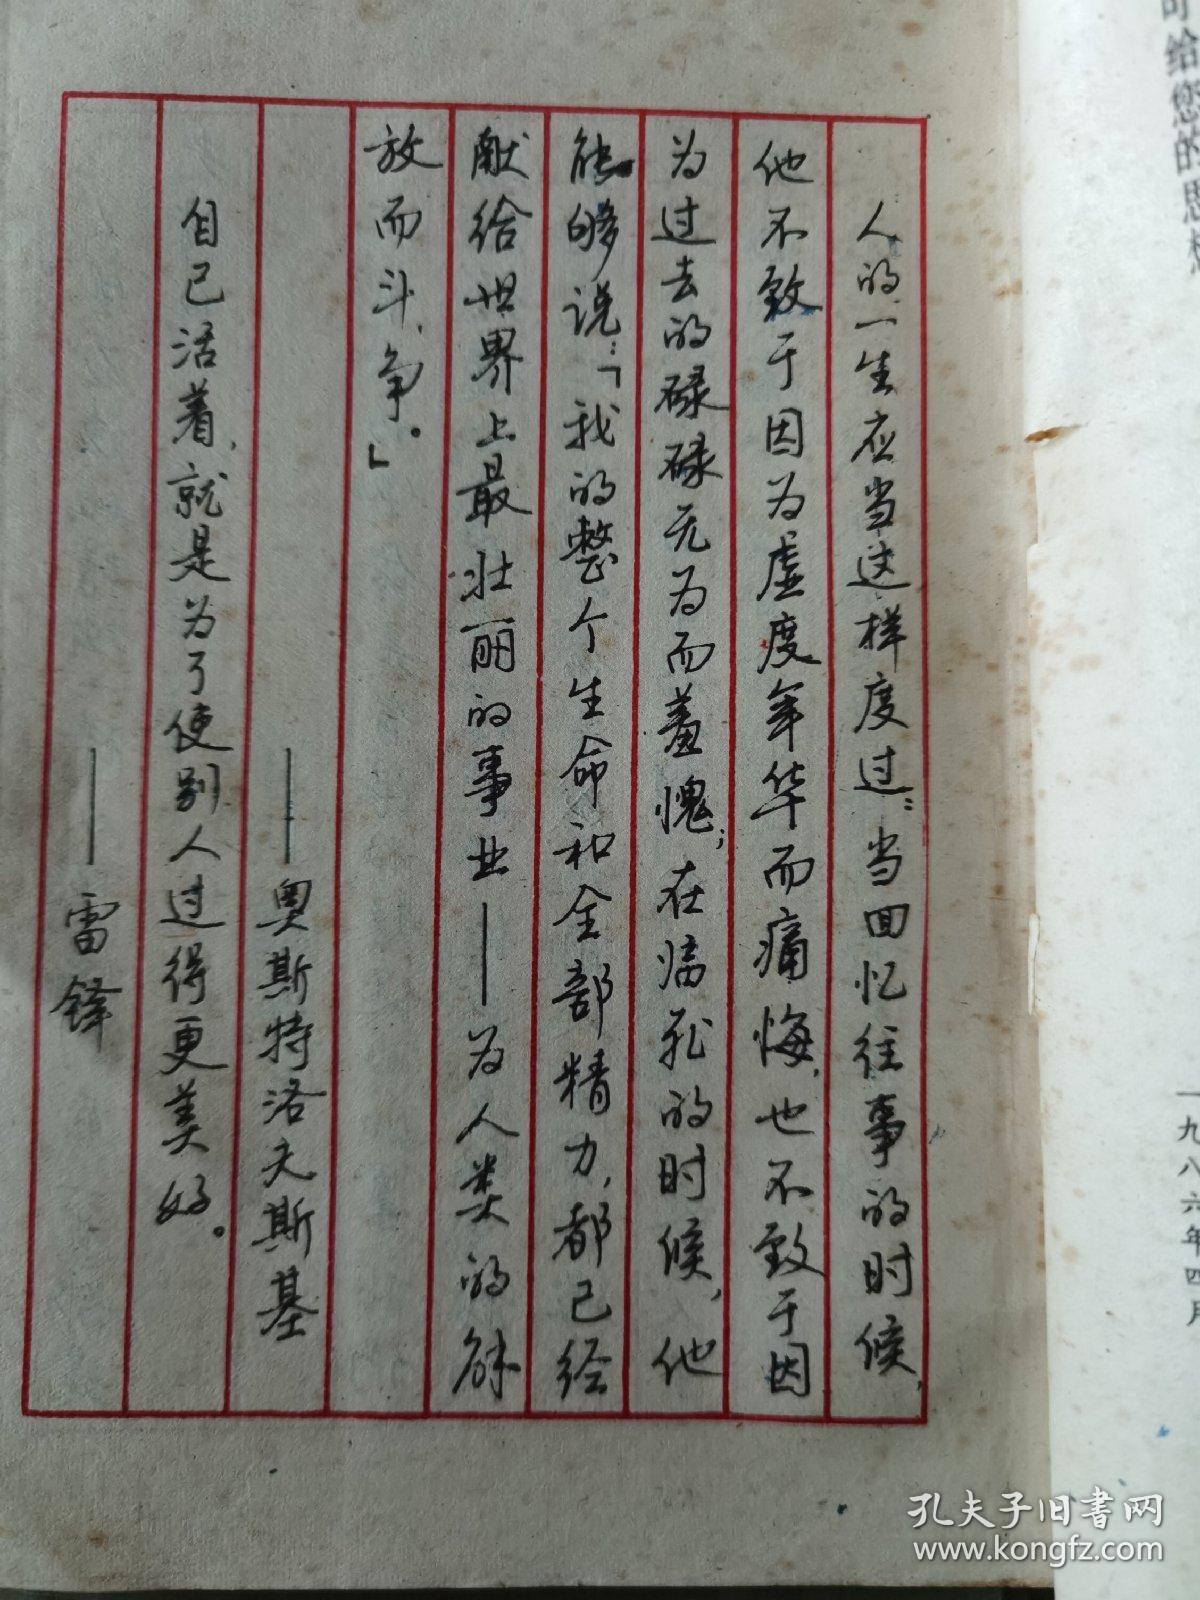 可给您的思
一九八六年四月
人的一生应当这样度过：当回忆往事的时候，
他不致于因为虚度年华而痛悔，也不致于因
为过去的碌碌无为而羞愧；在临死的时候，他
能够说：「我的整个生命和全部精力，都已经
献给世界上最壮丽的事业——为人类的解
放而斗争。」
——奥斯特洛夫斯基
自己活着，就是为了使别人过得更美好。
——雷锋
孔夫子旧书网
www.kongfz.com